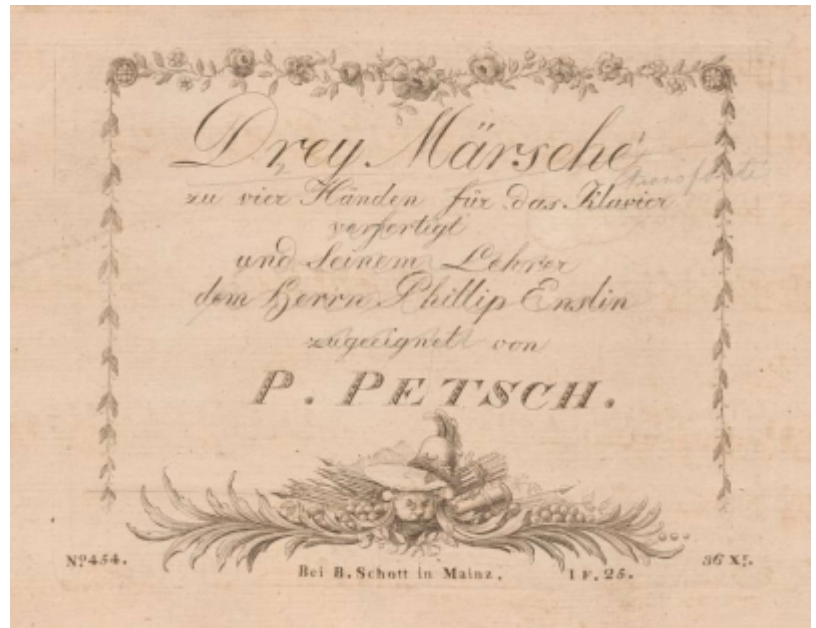 Drey Märsche
zu vier Händen für das Klavier
verfertigt
und Seinem Lehrer
dem Herrn Phillip Enslin
zugeeignet von
P. PETSCH.
Nº 454.
Bei B. Schott in Mainz.
1 F. 25.
36 Xr.